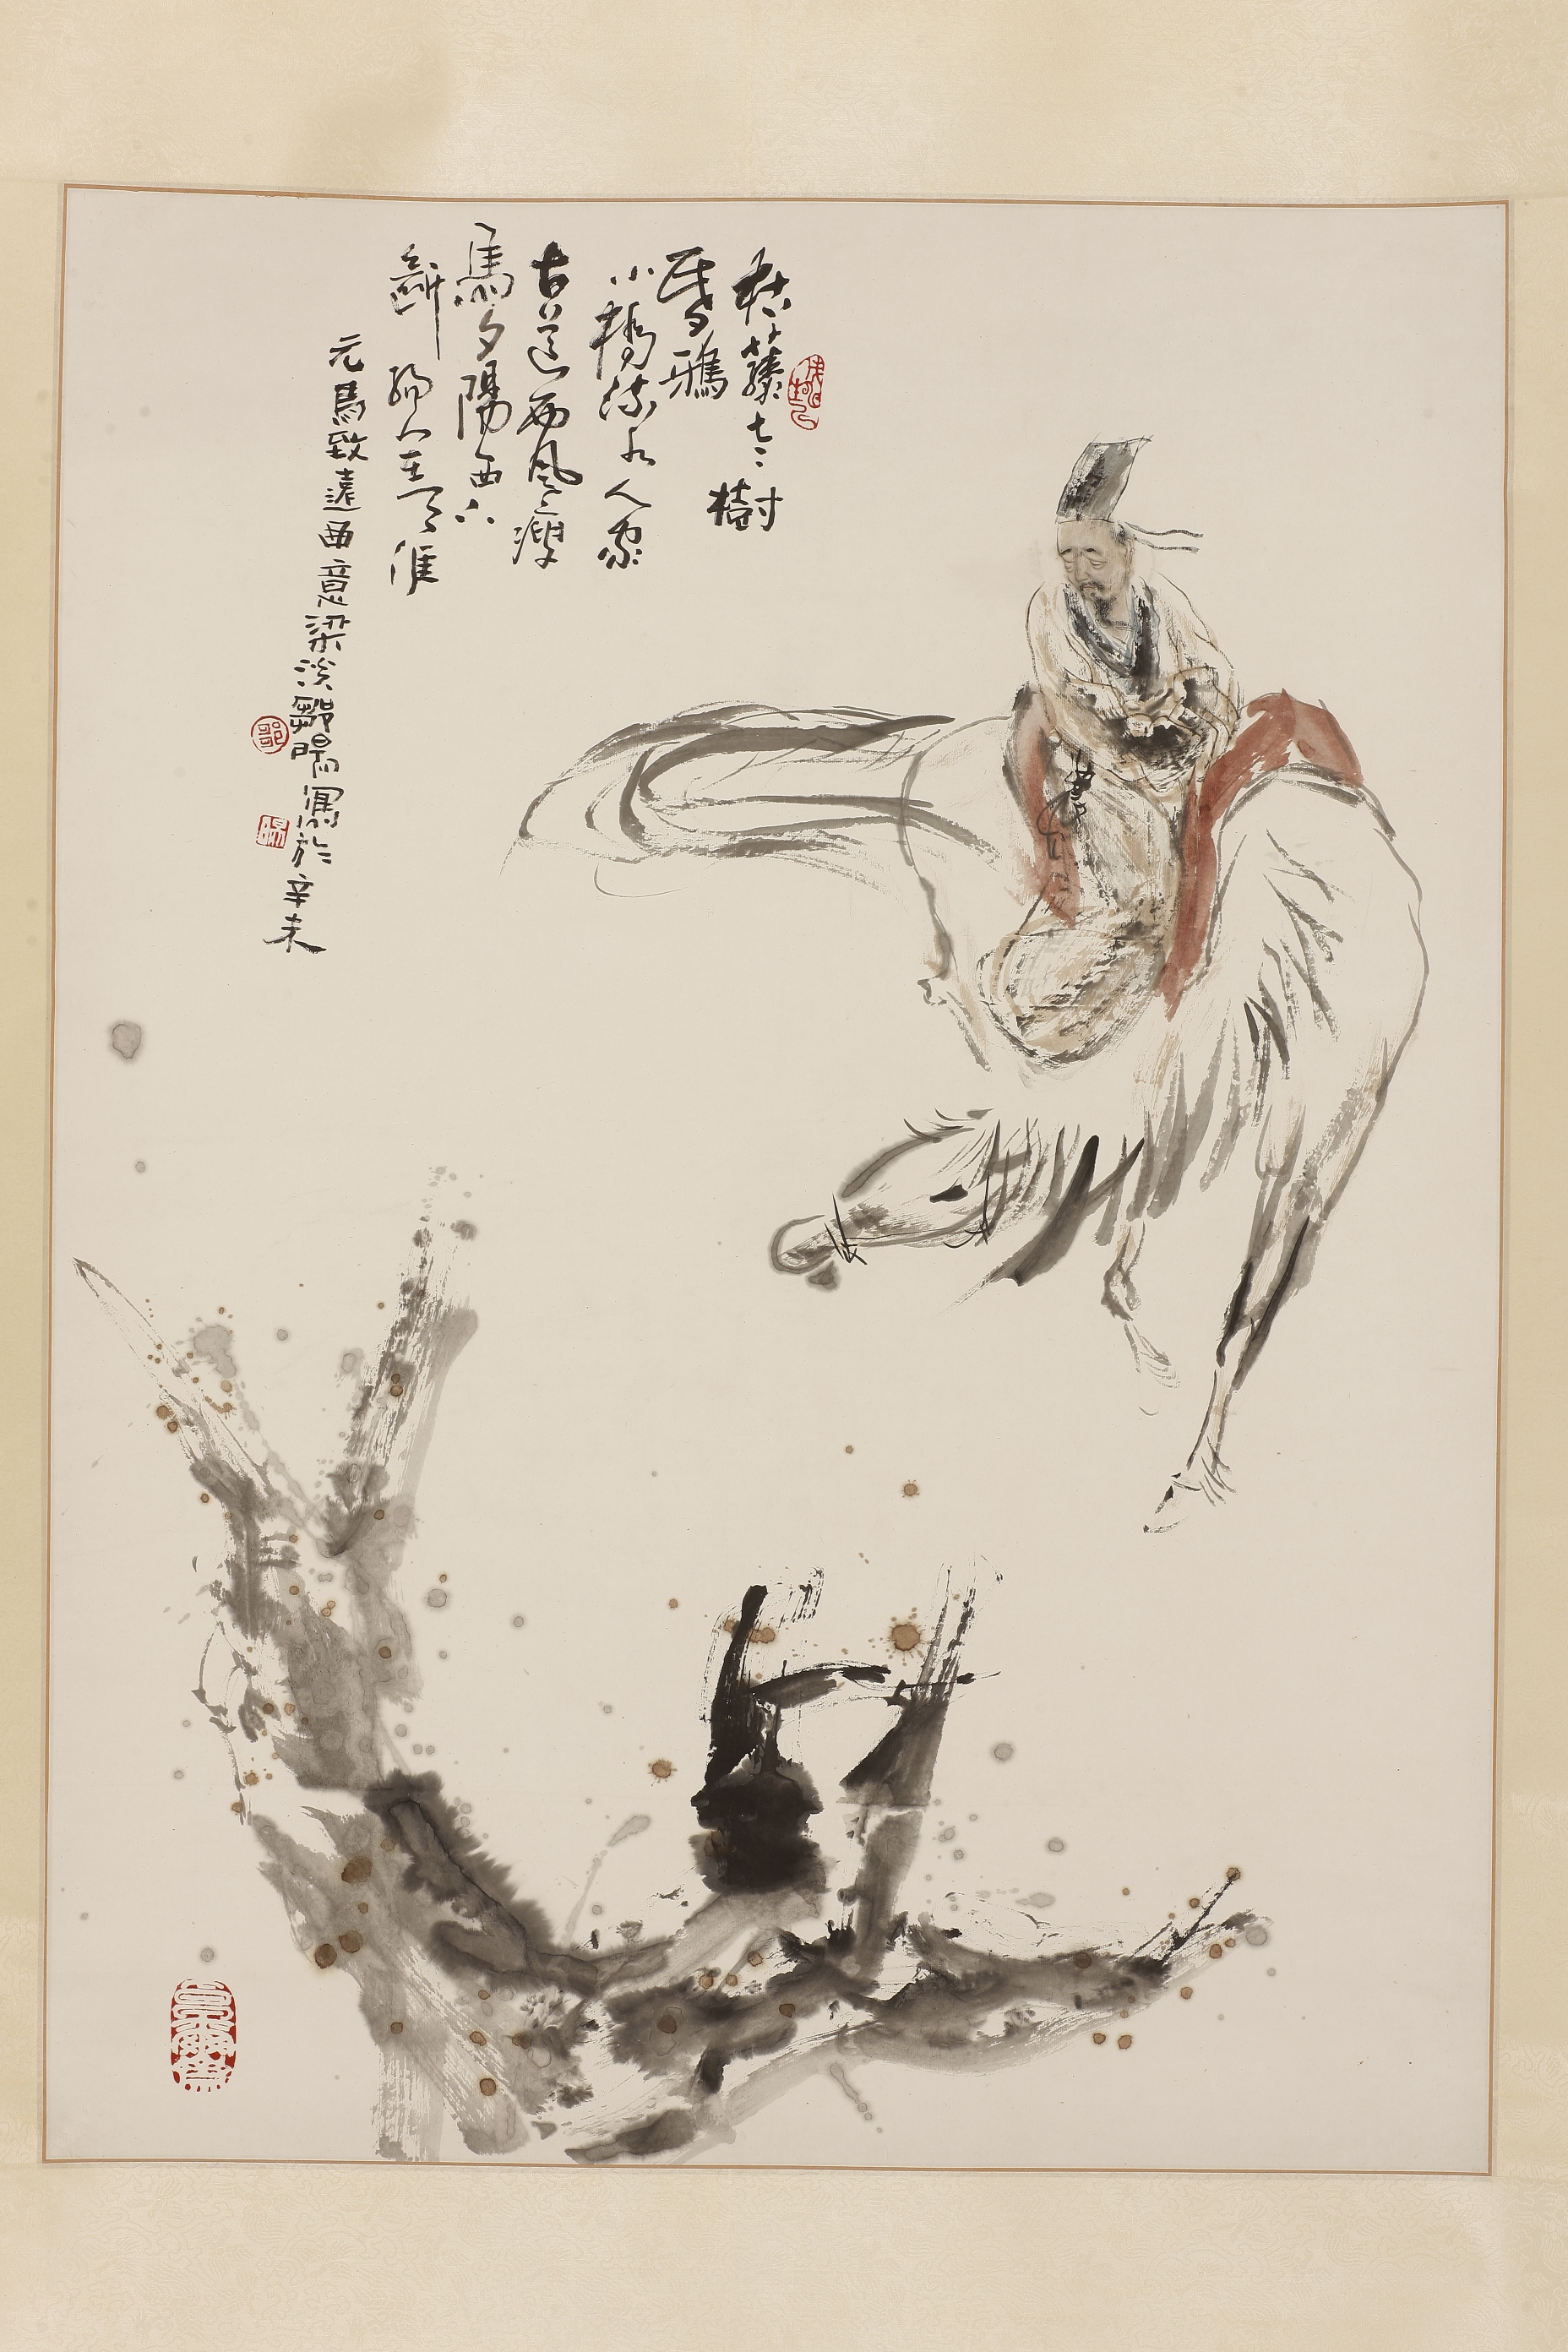 枯藤老樹
昏鴉
小橋流水人家
古道西風瘦
馬夕陽西下
斷腸人在天涯
元馬致遠曲意梁溪鄒陽寫於辛未
鄒
陽